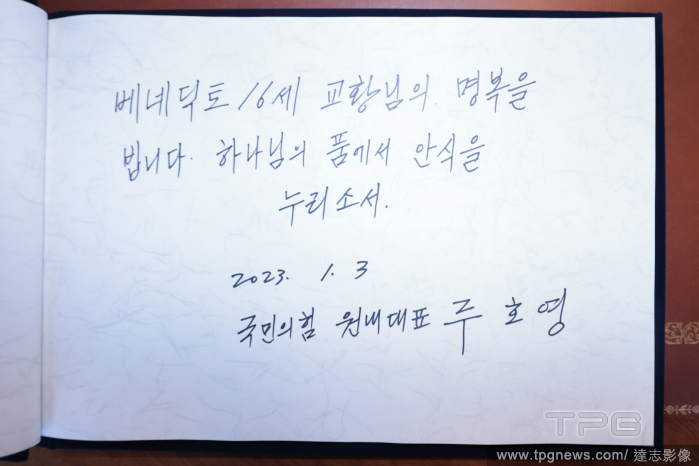 베네딕토 16세 교황님의 명복을
빕니다. 하나님의 품에서 안식을
누리소서.
2023. 1. 3
국민의힘 원내대표 주호영
TPG
www.tpgnews.com/ 達志影像